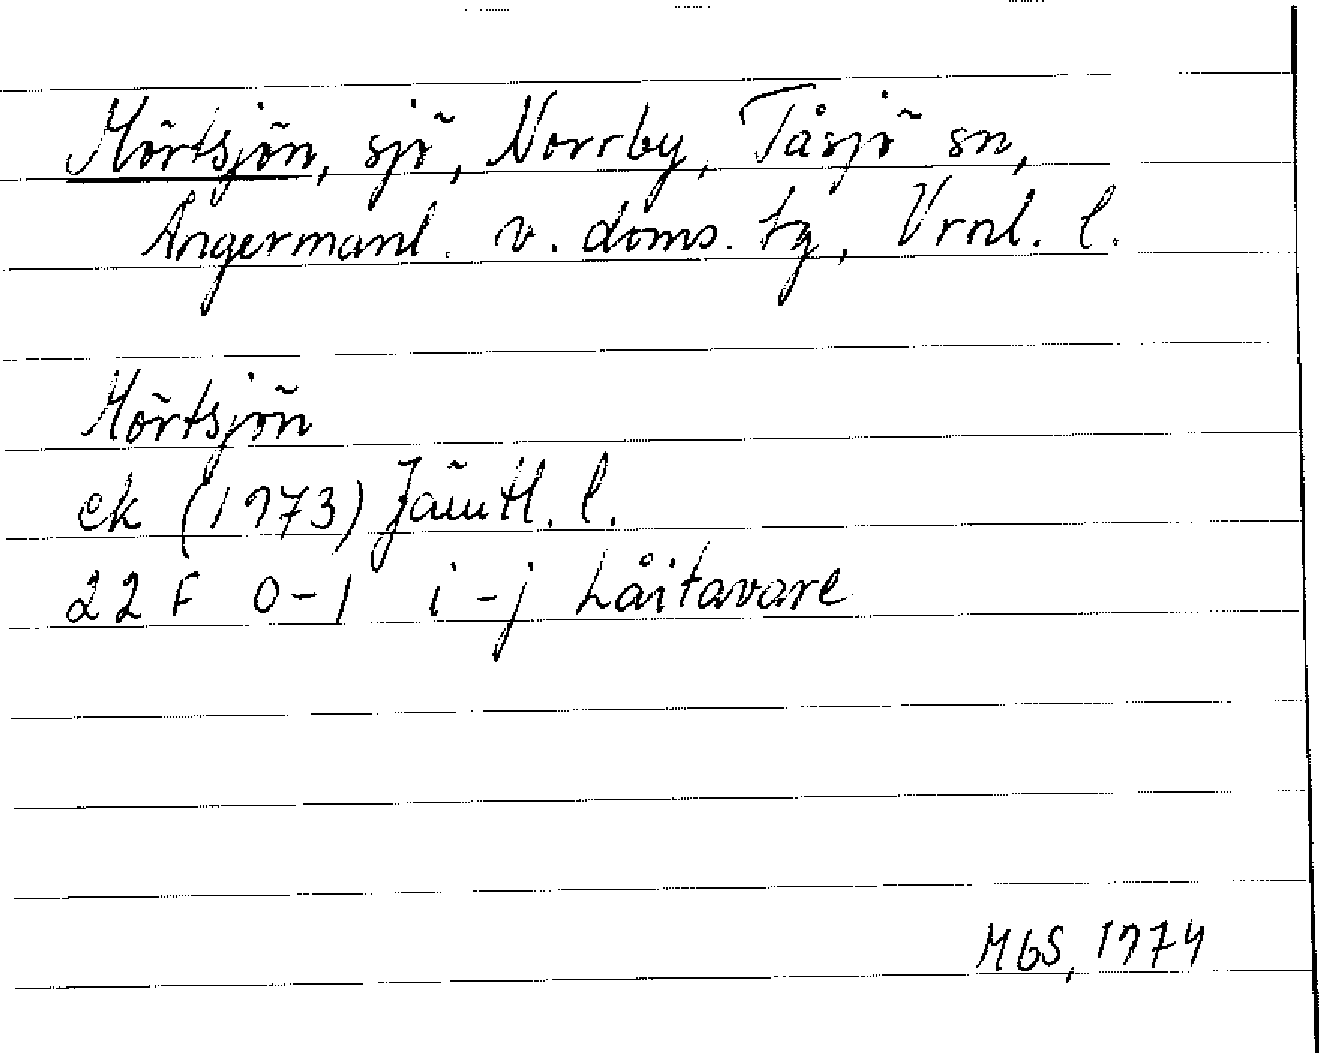 Mörtsjön, sjö, Norrby, Tåsjö sn,
Ångermanl. v. doms. tg, Vrnl. l.
Mörtsjön
ek (1973) Jämtl. l.
22 F 0-1 i-j Låitavare
MbS, 1974